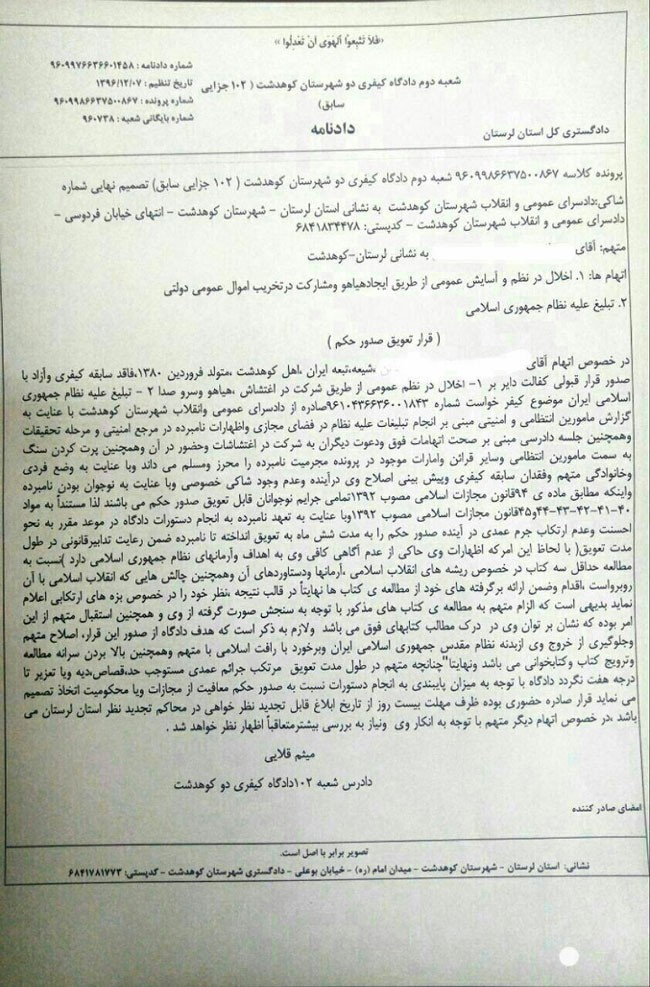 «فَلاَ تَتَّبِعُواْ الْهَوَى أَنْ تَعْدِلُوا»
شماره دادنامه : ۹۶۰۹۹۷۶۶۳۶۶۰۱۴۵۸
تاریخ تنظیم : ۱۳۹۶/۱۲/۰۷
شماره پرونده : ۹۶۰۹۹۸۶۶۳۷۵۰۰۸۶۷
شماره بایگانی شعبه : ۹۶۰۷۳۸
شعبه دوم دادگاه کیفری دو شهرستان کوهدشت ( ۱۰۲ جزایی
سابق)
دادنامه
دادگستری کل استان لرستان
پرونده کلاسه ۹۶۰۹۹۸۶۶۳۷۵۰۰۸۶۷ شعبه دوم دادگاه کیفری دو شهرستان کوهدشت ( ۱۰۲ جزایی سابق) تصمیم نهایی شماره
شاکی:دادسرای عمومی و انقلاب شهرستان کوهدشت به نشانی استان لرستان - شهرستان کوهدشت - انتهای خیابان فردوسی -
دادسرای عمومی و انقلاب شهرستان کوهدشت - کدپستی: ۶۸۴۱۸۳۴۴۷۸
متهم: آقای به نشانی لرستان-کوهدشت
اتهام ها: ۱. اخلال در نظم و آسایش عمومی از طریق ایجادهیاهو ومشارکت درتخریب اموال عمومی دولتی
۲. تبلیغ علیه نظام جمهوری اسلامی
( قرار تعویق صدور حکم )
در خصوص اتهام آقای ،شیعه،تبعه ایران ،اهل کوهدشت ،متولد فروردین ۱۳۸۰،فاقد سابقه کیفری وآزاد با
صدور قرار قبولی کفالت دایر بر ۱- اخلال در نظم عمومی از طریق شرکت در اغتشاش ،هیاهو وسرو صدا ۲ - تبلیغ علیه نظام جمهوری
اسلامی ایران موضوع کیفر خواست شماره ۹۶۱۰۴۳۶۶۳۶۰۰۱۸۴۳صادره از دادسرای عمومی وانقلاب شهرستان کوهدشت با عنایت به
گزارش مامورین انتظامی و امنیتی مبنی بر انجام تبلیغات علیه نظام در فضای مجازی واظهارات نامبرده در مرجع امنیتی و مرحله تحقیقات
وهمچنین جلسه دادرسی مبنی بر صحت اتهامات فوق ودعوت دیگران به شرکت در اغتشاشات وحضور در آن وهمچنین پرت کردن سنگ
به سمت مامورین انتظامی وسایر قرائن وامارات موجود در پرونده مجرمیت نامبرده را محرز ومسلم می داند وبا عنایت به وضع فردی
وخانوادگی متهم وفقدان سابقه کیفری وپیش بینی اصلاح وی درآینده وعدم وجود شاکی خصوصی وبا عنایت به نوجوان بودن نامبرده
واینکه مطابق ماده ی ۹۴قانون مجازات اسلامی مصوب ۱۳۹۲تمامی جرایم نوجوانان قابل تعویق صدور حکم می باشند لذا مستنداً به مواد
۴۰-۴۱-۴۲-۴۳-۴۴و۴۵قانون مجازات اسلامی مصوب ۱۳۹۲وبا عنایت به تعهد نامبرده به انجام دستورات دادگاه در موعد مقرر به نحو
احسنت وعدم ارتکاب جرم عمدی در آینده صدور حکم را به مدت شش ماه به تعویق انداخته تا نامبرده ضمن رعایت تدابیرقانونی در طول
مدت تعویق( با لحاظ این امرکه اظهارات وی حاکی از عدم آگاهی کافی وی به اهداف وآرمانهای نظام جمهوری اسلامی دارد )نسبت به
مطالعه حداقل سه کتاب در خصوص ریشه های انقلاب اسلامی ،آرمانها ودستاوردهای آن وهمچنین چالش هایی که انقلاب اسلامی با آن
روبرواست ،اقدام وضمن ارائه برگرفته های خود از مطالعه ی کتاب ها نهایتاً در قالب نتیجه ،نظر خود را در خصوص بزه های ارتکابی اعلام
نماید بدیهی است که الزام متهم به مطالعه ی کتاب های مذکور با توجه به سنجش صورت گرفته از وی و همچنین استقبال متهم از این
امر بوده که نشان بر توان وی در درک مطالب کتابهای فوق می باشد ولازم به ذکر است که هدف دادگاه از صدور این قرار، اصلاح متهم
وجلوگیری از خروج وی ازبدنه نظام مقدس جمهوری اسلامی ایران وبرخورد با رافت اسلامی با متهم وهمچنین بالا بردن سرانه مطالعه
وترویج کتاب وکتابخوانی می باشد ونهایتا"چنانچه متهم در طول مدت تعویق مرتکب جرائم عمدی مستوجب حد،قصاص،دیه ویا تعزیر تا
درجه هفت نگردد دادگاه با توجه به میزان پایبندی به انجام دستورات نسبت به صدور حکم معافیت از مجازات ویا محکومیت اتخاذ تصمیم
می نماید قرار صادره حضوری بوده ظرف مهلت بیست روز از تاریخ ابلاغ قابل تجدید نظر خواهی در محاکم تجدید نظر استان لرستان می
باشد ،در خصوص اتهام دیگر متهم با توجه به انکار وی ونیاز به بررسی بیشترمتعاقباً اظهار نظر خواهد شد .
میثم قلایی
دادرس شعبه ۱۰۲دادگاه کیفری دو کوهدشت
امضای صادر کننده
تصویر برابر با اصل است.
نشانی: استان لرستان - شهرستان کوهدشت - میدان امام (ره) - خیابان بوعلی - دادگستری شهرستان کوهدشت - کدپستی: ۶۸۴۱۷۸۱۷۷۳